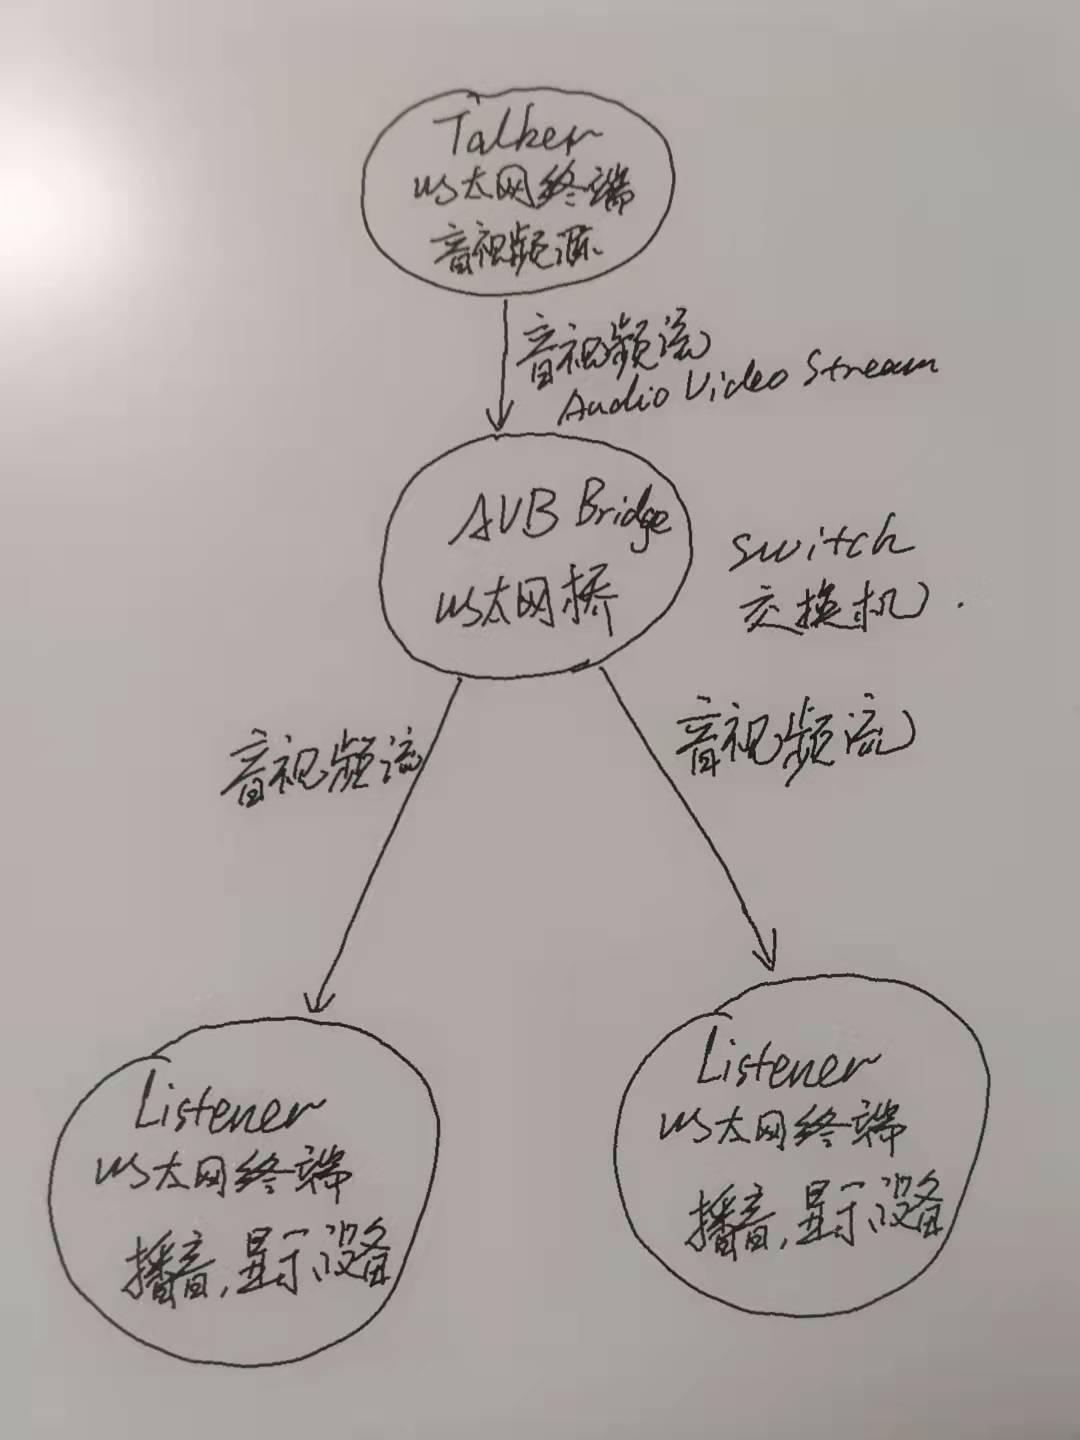 Talker
以太网终端
音视频源
音视频流
Audio Video Stream
AVB Bridge
以太网桥
switch
交换机.
音视频流
音视频流
Listener
以太网终端
播音,显示设备
Listener
以太网终端
播音,显示设备